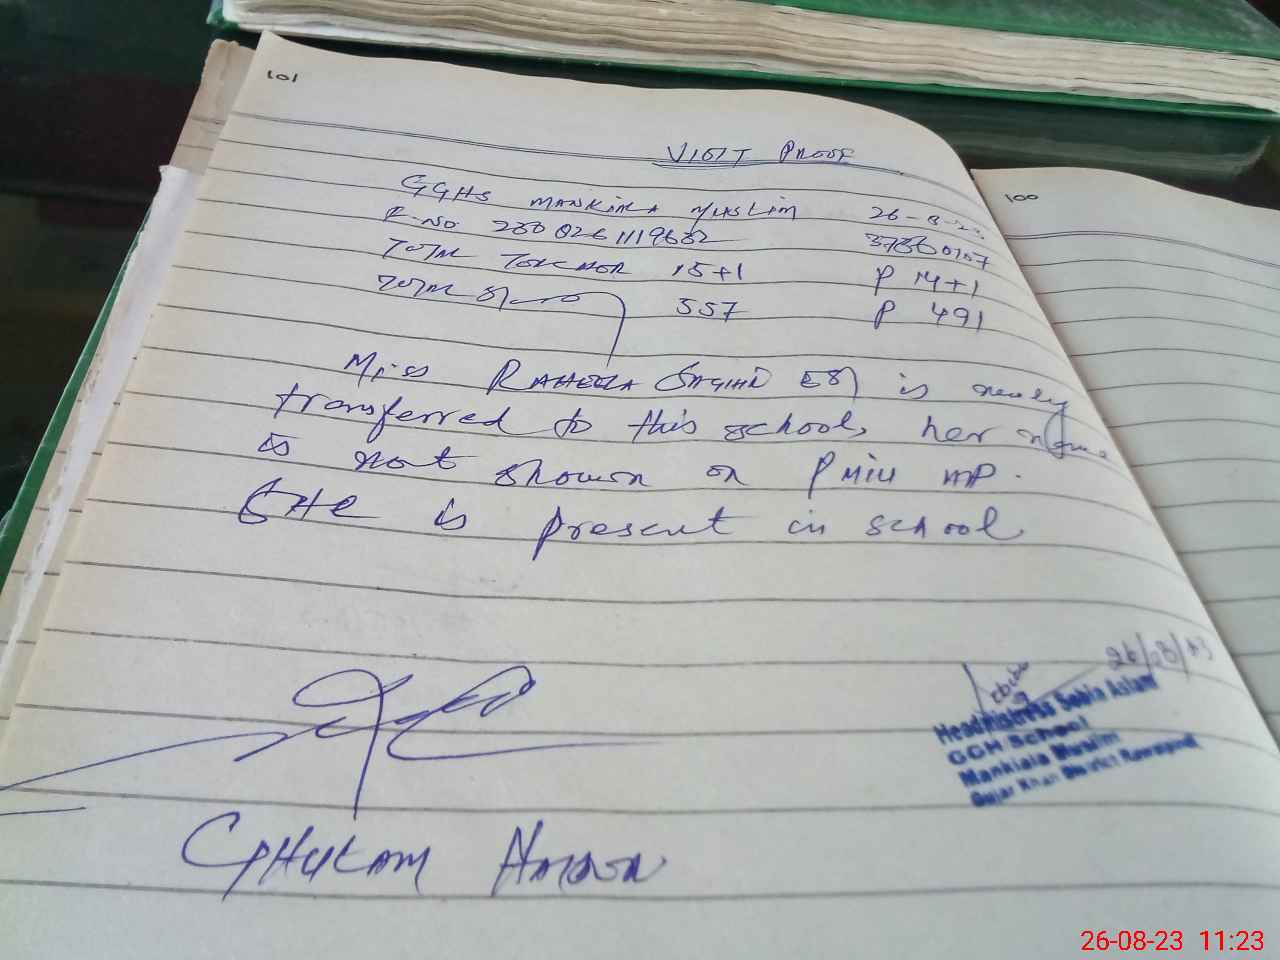 101
100
VISIT PROOF
GGHS MANKIALA MUSLIM 26-8-23
R-No 37360107
TOTAL TEACHER 15+1 P 14+1
TOTAL 557 P 491
Miss RAHEELA is newly
transferred to this school, her name
is not shown on PMIU
SHE is present in school
26/08/23
Headmistress Sobia Aslam
GGH School
Mankiala Muslim
Gujar Khan District Rawalpindi
GHULAM
26-08-23 11:23